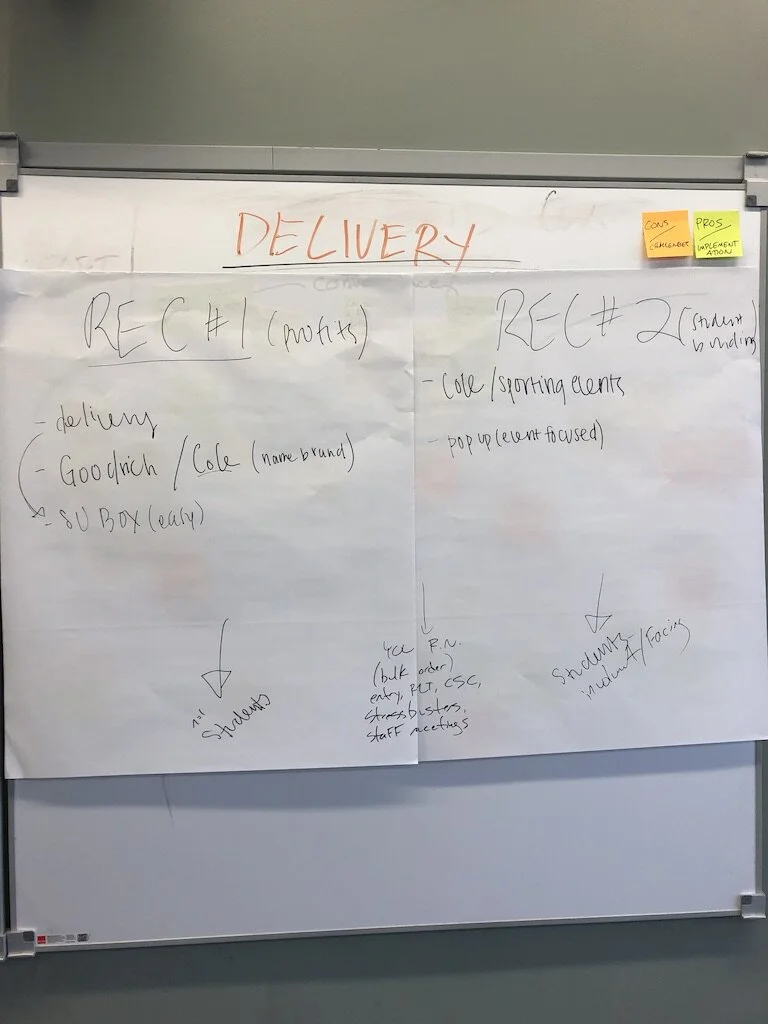 DELIVERY
CONS/
PROS/
IMPLEMENT
ATION
REC #1 (profits)
- delivery
- Goodrich / Cole (name brand)
- SU BOX (easy)
not
Students
REC # 2 (student
- Cole/sporting events
- pop up (event focused)
R.N.
(bulk order)
entry, CSC,
stressbusters,
staff meetings
Students
/Facing